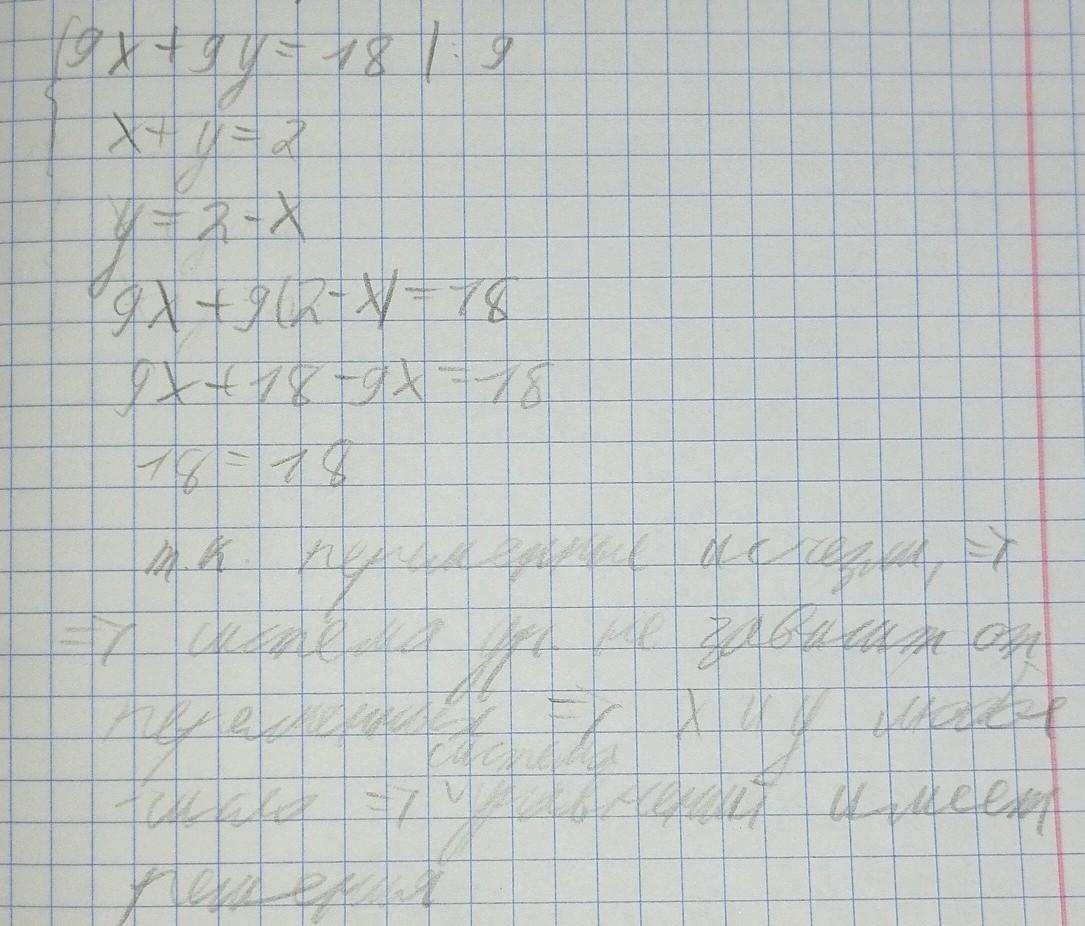 {9x+9y=18 |:9
x+y=2
y=2-x
9x+9(2-x)=18
9x+18-9x=18
18=18
т.к. переменные исчезли, =>
=> система ур. не зависит от
переменных => x и y любое
система
число => ˅уравнений имеет
решения